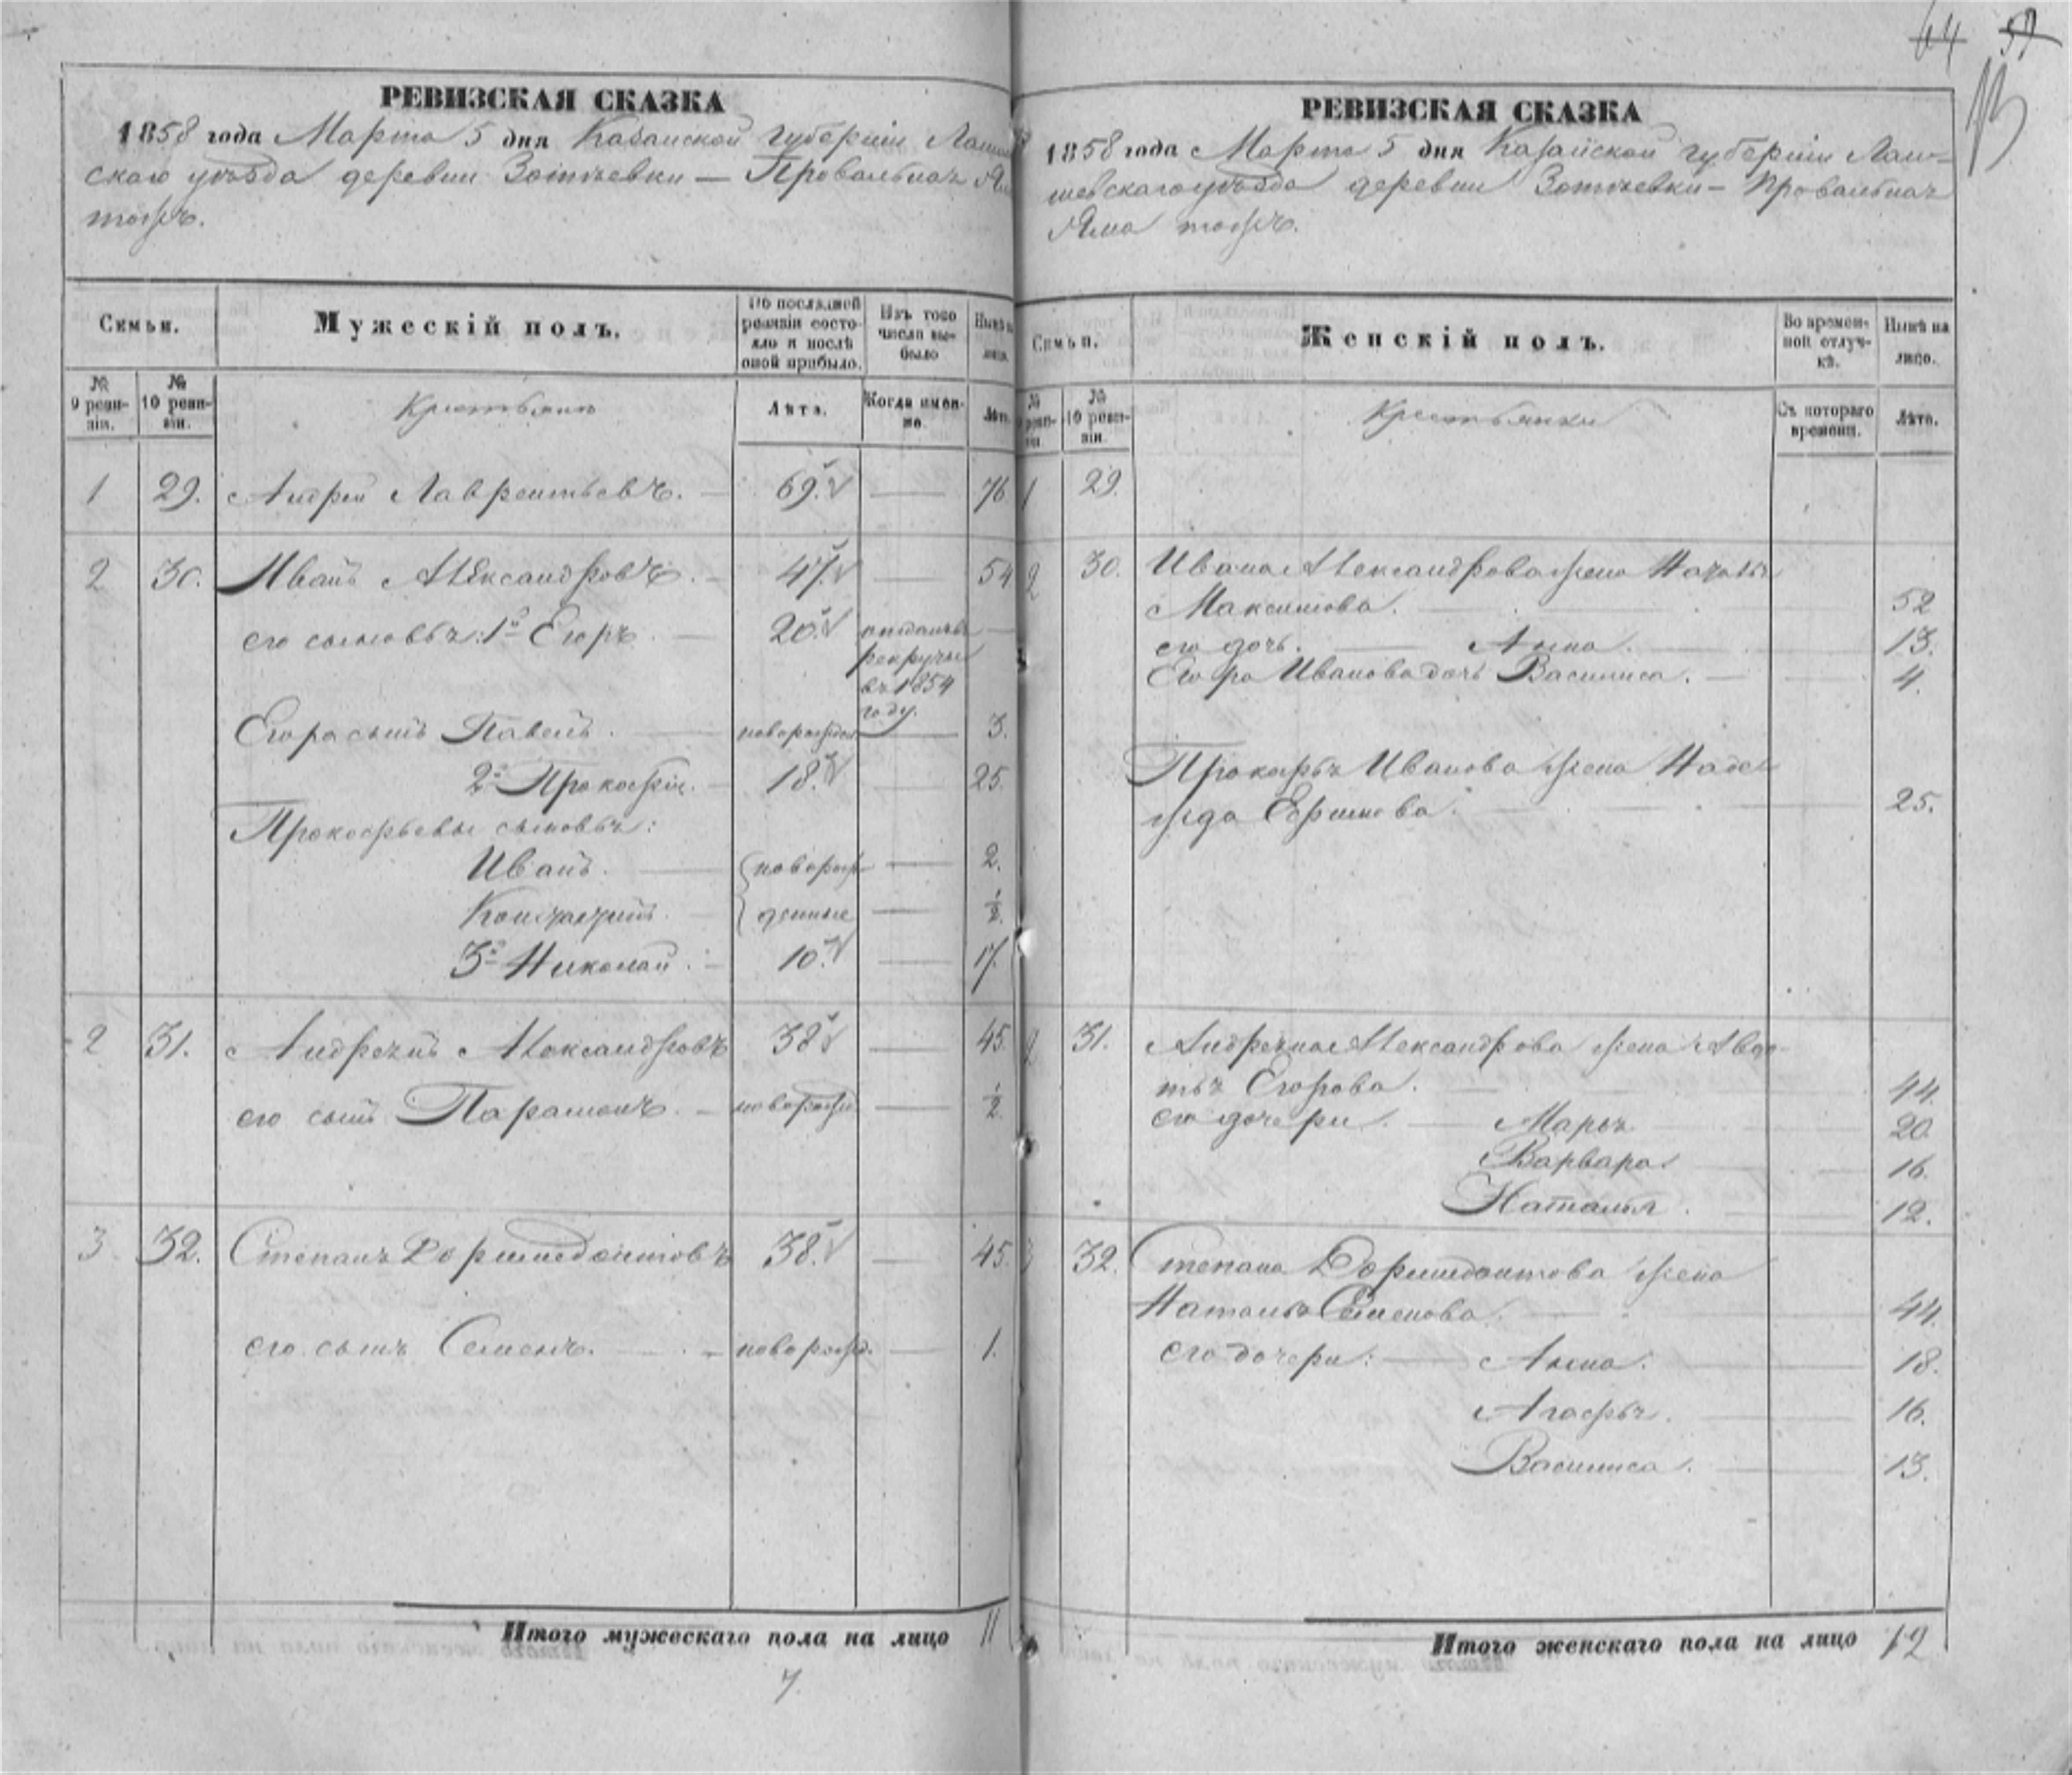 64 57
РЕВИЗСКАЯ СКАЗКА
1858 года Марта 5 дня Казанской губерніи Лаише
скаго уѣзда деревни Зотѣевки — Провальная Яма
тожъ.
Семьи.
Мужескій полъ.
По послѣдней ревизіи состояло и послѣ оной прибыло.
Изъ того числа выбыло
Нынѣ на лицо.
№ 9 ревизіи.
№ 10 ревизіи.
Крестьяне
Лѣта.
Когда именно.
Лѣта.
1 29. Андрей Лаврентьевъ. — 69. — 76
2 30. Иванъ Александровъ. — 47. — 54
его сыновья: 1й Егоръ. — 20. отданъ въ —
рекруты
въ 1854
году.
Егора сынъ Павелъ. — новорожден — 3.
2й Прокофій. — 18. — 25.
Прокофьевы сыновья:
Иванъ. — новорож — 2.
— денные — ½.
3й Николай. — 10. — 17.
2 31. Андреянъ Александровъ 38 — 45.
его сынъ Парамонъ. — новорожд. — ½.
3 32. Степанъ Дормидонтовъ 38. — 45.
его сынъ Семенъ. — новорожд. — 1.
Итого мужескаго пола на лицо 11
7.
РЕВИЗСКАЯ СКАЗКА
1858 года Марта 5 дня Казанской губерніи Лаи-
шевскаго уѣзда деревни Зотѣевки — Провальная
Яма тожъ.
Семьи.
Женскій полъ.
Во временной отлучкѣ.
Нынѣ на лицо.
№ 9 ревизіи
№ 10 ревизіи.
Крестьянки
Съ котораго времени.
Лѣта.
1 29.
2 30. Ивана Александрова жена
Максимова. — 52
его дочь. — Анна. — 13.
Егора Иванова дочь Василиса. — 4.
Прокофья Иванова жена Наде-
жда Ефимова. — 25.
2 31. Андреяна Александрова жена Авдо-
тья Егорова. — 44.
его дочери. — Марья 20.
Варвара. — 16.
Наталья. — 12.
3 32. Степана Дормидонтова жена
Наталья Семенова. — 44.
его дочери: — Анна. — 18.
Агафья. — 16.
Василиса. — 13.
Итого женскаго пола на лицо 12